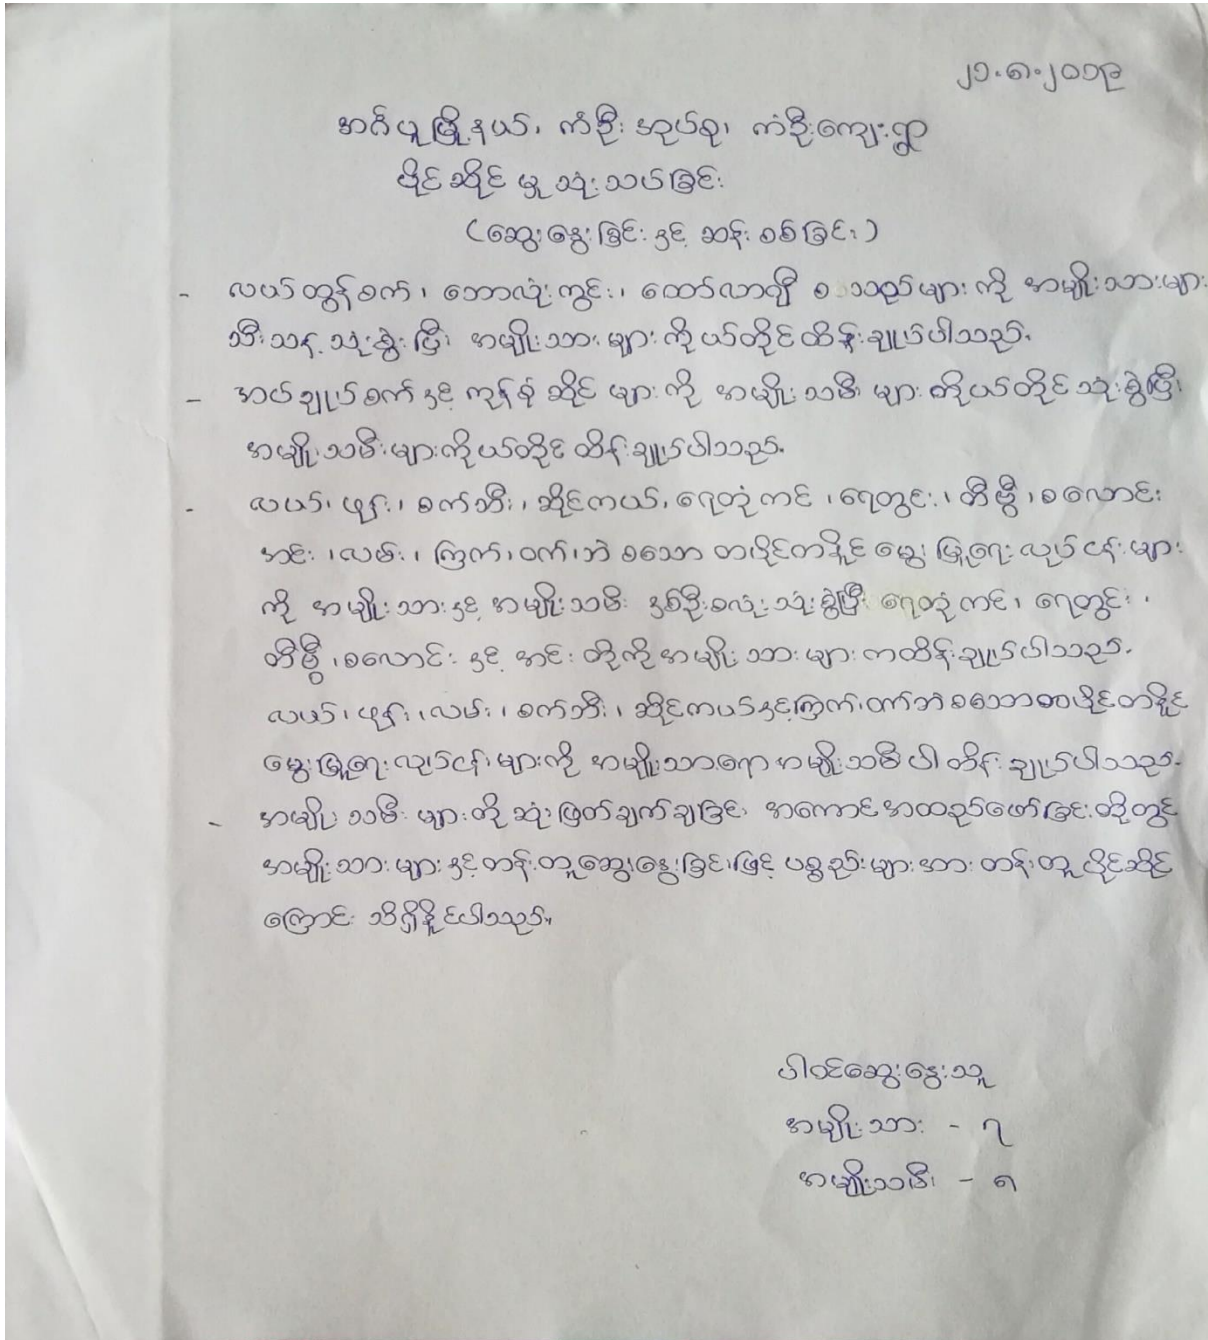 ၂၁.၈.၂၀၁၉
အင်ပူမြို့နယ်၊ ကံဦး အုပ်စု၊ ကံဦးကျေးရွာ
ပိုင်ဆိုင်မှု သုံးသပ်ခြင်း
(ဆွေးနွေးခြင်းနှင့် ဆန်းစစ်ခြင်း)
- လယ်ထွန်စက်၊ ဘောလုံးကွင်း၊ ထော်လာဂျီ စသည်များကို အမျိုးသားများ
သီးသန့်သုံးစွဲပြီး အမျိုးသားများကိုယ်တိုင်ထိန်းချုပ်ပါသည်။
- အပ်ချုပ်စက်နှင့် ကုန်စုံဆိုင်များကို အမျိုးသမီးများကိုယ်တိုင်သုံးစွဲပြီး
အမျိုးသမီးများကိုယ်တိုင် ထိန်းချုပ်ပါသည်။
- လယ်၊ ဖုန်း၊ စက်ဘီး၊ ဆိုင်ကယ်၊ ရေတုံကင်၊ ရေတွင်း၊ တီဗွီ၊ စလောင်း
အင်း၊ လမ်း၊ ကြက်၊ ဝက်၊ ဘဲ စသော တပိုင်တနိုင် မွေးမြူရေးလုပ်ငန်းများ
ကို အမျိုးသားနှင့် အမျိုးသမီး နှစ်ဦးစလုံးသုံးစွဲပြီး ရေတုံကင်၊ ရေတွင်း၊
တီဗွီ၊ စလောင်းနှင့် အင်းတို့ကို အမျိုးသားများကထိန်းချုပ်ပါသည်။
လယ်၊ ဖုန်း၊ လမ်း၊ စက်ဘီး၊ ဆိုင်ကယ်နှင့်ကြက်၊ ဝက်ဘဲစသောတပိုင်တနိုင်
မွေးမြူရေးလုပ်ငန်းများကို အမျိုးသားရောအမျိုးသမီးပါ ထိန်းချုပ်ပါသည်။
- အမျိုးသမီးများကို ဆုံးဖြတ်ချက်ချခြင်း အကောင်အထည်ဖော်ခြင်းတို့တွင်
အမျိုးသားများနှင့်တန်းတူဆွေးနွေးခြင်းဖြင့် ပစ္စည်းများအား တန်းတူပိုင်ဆိုင်
ကြောင်း သိရှိနိုင်ပါသည်။
ပါဝင်ဆွေးနွေးသူ
အမျိုးသား - ၇
အမျိုးသမီး - ၈